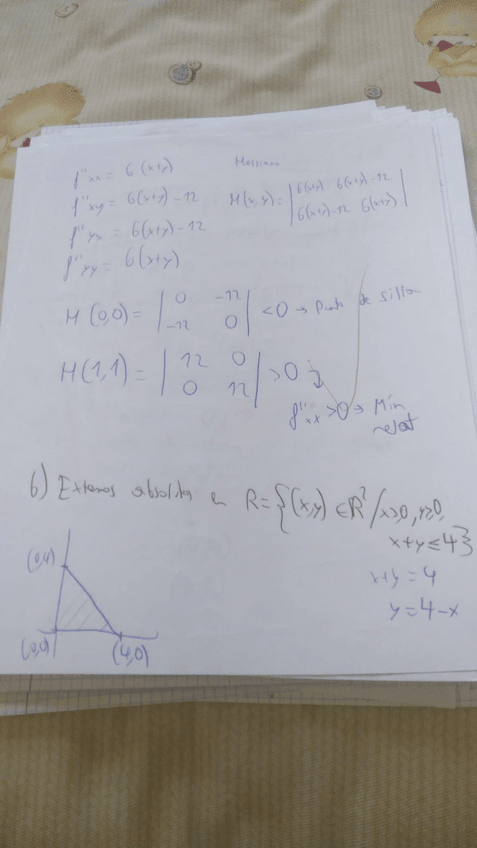 f''xx = 6(x+y)
Hessiano
f''xy = 6(x+y)-12
H(x,y) = | 6(x+y) 6(x+y)-12 |
| 6(x+y)-12 6(x+y) |
f''yx = 6(x+y)-12
f''yy = 6(x+y)
H(0,0) = | 0 -12 | <0 → Punto de silla
| -12 0 |
H(1,1) = | 12 0 | >0
| 0 12 |
f''xx >0 → Min
relat
b) Extremos absolutos en R={(x,y) ∈ R²/x≥0, y≥0,
x+y ≤ 4}
(0,4)
x+y = 4
y = 4-x
(0,0)
(4,0)